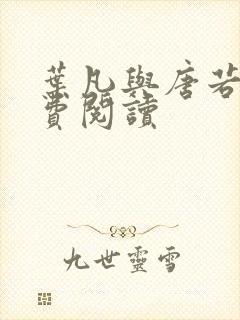 葉凡與唐若
費閱讀
九世靈雪